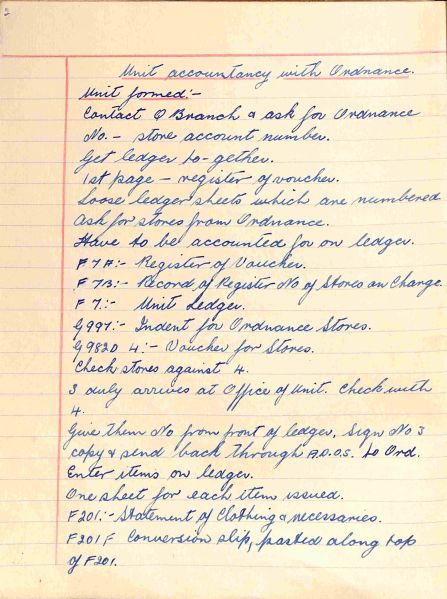 Unit accountancy with Ordnance.
Unit formed:-
Contact Q Branch & ask for Ordnance
No. - store account number.
Get ledger to-gether.
1st page - register of voucher.
Loose ledger sheets which are numbered
Ask for stores from Ordnance.
Have to be accounted for on ledger.
F7A:- Register of Voucher.
F7B:- Record of Register No of Stores on Charge.
F7:- Unit Ledger.
G997:- Indent for Ordnance Stores.
G982D 4:- Voucher for Stores.
Check stores against 4.
3 duly arrives at Office of Unit. Check with
4.
Give them No from front of ledger, sign No 3
copy & send back through A.D.O.S. to Ord.
Enter items on ledger.
One sheet for each item issued.
F201:- Statement of Clothing & necessaries.
F201F Conversion slip, pasted along top
of F201.